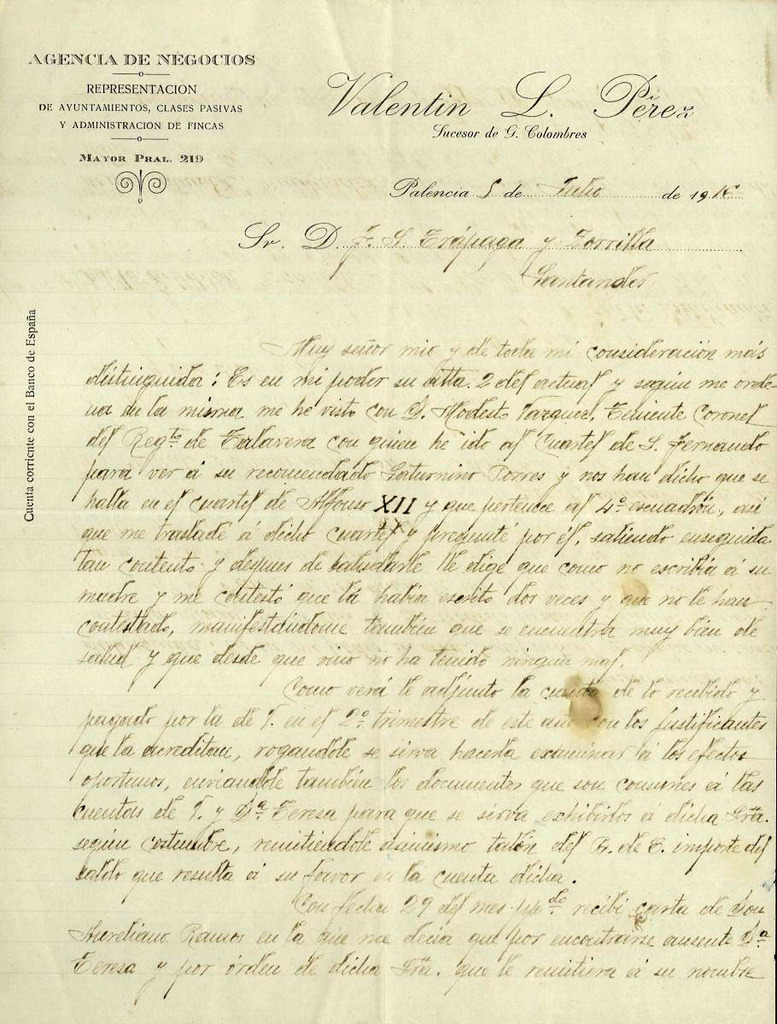 AGENCIA DE NEGOCIOS
REPRESENTACION
DE AYUNTAMIENTOS, CLASES PASIVAS
Y ADMINISTRACION DE FINCAS
MAYOR PRAL. 219
Valentin L. Pérez
Sucesor de G. Colombres
Palencia 5 de Julio de 1916
Sr. D. F. S. Trápaga y Zorrilla
Santander
Cuenta corriente con el Banco de España
Muy señor mio y de toda mi consideración más
distinguida: Es en mi poder su atta. 2 del actual y según me orde-
na en la misma me he visto con D. Modesto Vazquez, Teniente Coronel
del Regto. de Talavera con quien he ido al Cuartel de S. Fernando
para ver á su recomendado Saturnino Torres y nos han dicho que se
halla en el cuartel de Alfonso XII y que pertenece al 4º escuadrón, así
que me trasladé á dicho cuartel y pregunté por él, saliendo enseguida
tan contento y despues de saludarle le dige que como no escribía á su
madre y me contestó que la había escrito dos veces y que no le han
contestado, manifestándome también que se encuentra muy bien de
salud y que desde que vino no ha tenido ningun mal.
Como verá le adjunto la cuenta de lo recibido y
pagado por la de V. en el 2º trimestre de este año con los justificantes
que la acreditan, rogandole se sirva hacerla examinar á los efectos
oportunos, enviandole también los documentos que son comunes á las
cuentas de V. y Dª Teresa para que se sirva exhibirlos á dicha Sra.
según costumbre, remitiendole asimismo talón del B. de E. importe del
saldo que resulta á su favor en la cuenta dicha.
Con fecha 29 del mes ppdo. recibí carta de Don
Aureliano Ramos en la que me decia que por encontrarse ausente Dª
Teresa y por órden de dicha Sra. que le remitiera á su nombre